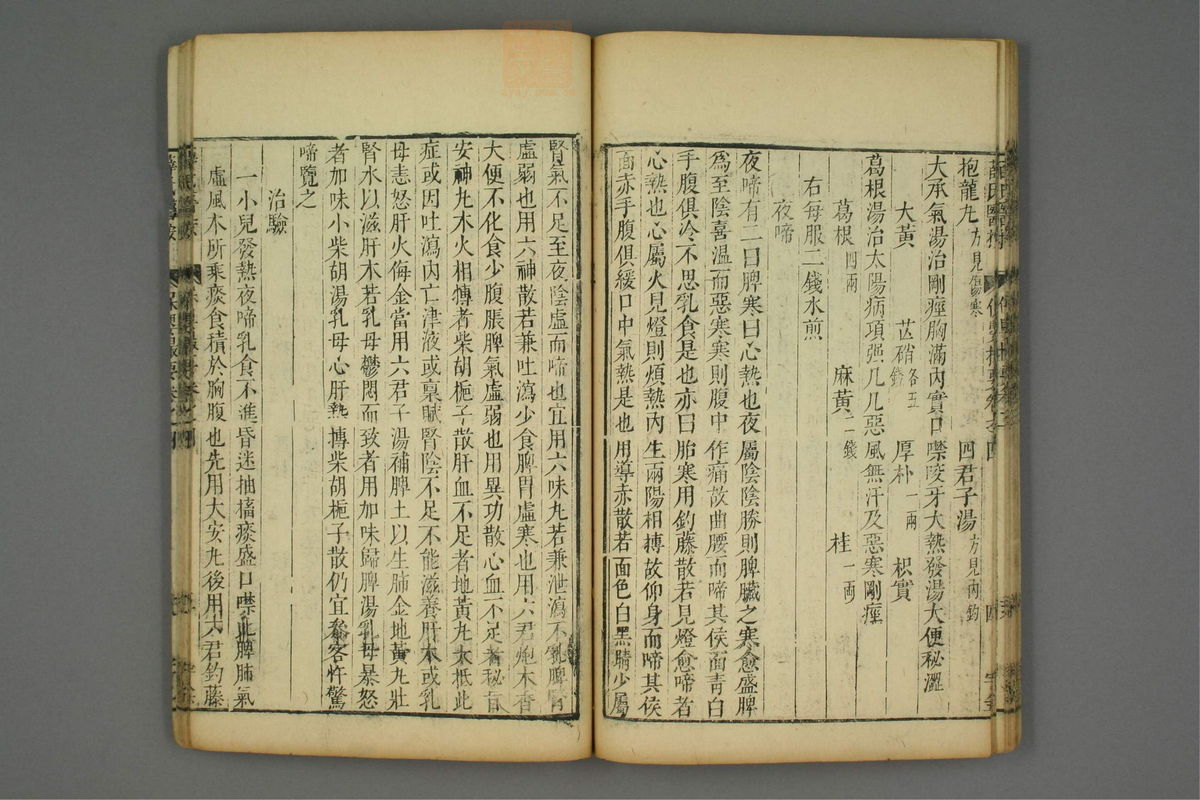 抱龍丸方見傷寒 四君子湯方見內釣
大承氣湯治剛痙胸滿內實口噤咬牙大熱發湯大便秘澀
大黃 芒硝各五錢 厚朴一兩 枳實
葛根湯治太陽病項强几几惡風無汗及惡寒剛痙
葛根四兩 麻黃一錢 桂一兩
右每服二錢水煎
夜啼
夜啼有二曰脾寒曰心熱也夜屬陰陰勝則脾臟之寒愈盛脾
爲至陰喜溫而惡寒寒則腹中作痛故曲腰而啼其侯面青白
手腹俱冷不思乳食是也亦曰胎寒用鈎藤散若見燈愈啼者
心熱也心屬火見燈則煩熱內生兩陽相搏故仰身而啼其侯
面赤手腹俱緩口中氣熱是也用導赤散若面色白黑睛少屬
腎氣不足至夜陰虛而啼也宜用六味丸若兼泄瀉不乳脾腎
虛弱也用六神散若兼吐瀉少食脾胃虛寒也用六君炮木香
大便不化食少腹脹脾氣虛弱也用異功散心血不足者秘旨
安神丸木火相搏者柴胡梔子散肝血不足者地黃丸大抵此
症或因吐瀉內亡津液或稟賦腎陰不足不能滋養肝木或乳
母恚怒肝火侮金當用六君子湯補脾土以生肺金地黃丸壯
腎水以滋肝木若乳母鬱悶而致者用加味歸脾湯乳母暴怒
者加味小柴胡湯乳母心肝熱搏柴胡梔子散仍宜參客忤驚
啼覽之
治驗
一小兒發熱夜啼乳食不進昏迷抽搐痰盛口噤此脾肺氣
虛風木所乘痰食積於胸腹也先用大安丸後用六君鈎藤